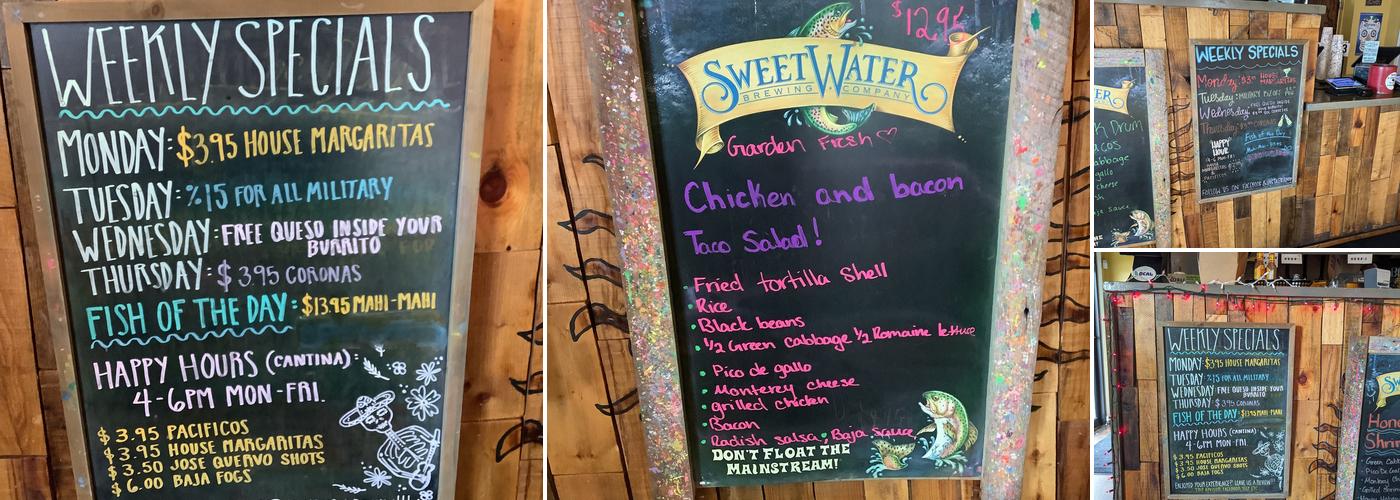 WEEKLY SPECIALS
MONDAY: $3.95 HOUSE MARGARITAS
TUESDAY: %15 FOR ALL MILITARY
WEDNESDAY: FREE QUESO INSIDE YOUR
BURRITO
THURSDAY: $3.95 CORONAS
FISH OF THE DAY: $13.95 MAHI-MAHI
HAPPY HOURS (CANTINA):
4-6PM MON-FRI.
$3.95 PACIFICOS
$3.95 HOUSE MARGARITAS
$3.50 JOSE QUERVO SHOTS
$6.00 BAJA FOGS
SWEETWATER
BREWING COMPANY
Garden Fresh
Chicken and bacon
Taco Salad!
Fried tortilla Shell
Rice
Black beans
1/2 Green Cabbage 1/2 Romaine lettuce
Pico de gallo
Monterey cheese
grilled chicken
Bacon
Radish salsa, Baja Sauce
DON'T FLOAT THE
MAINSTREAM!
WEEKLY SPECIALS
Monday:
Tuesday:
Wednesday:
Thursday:
Fish of the Day
HAPPY
HOUR
Drum
acos
abbage
gallo
cheese
WEEKLY SPECIALS
MONDAY: $3.95 HOUSE MARGARITAS
TUESDAY: %15 FOR ALL MILITARY
WEDNESDAY: FREE QUESO INSIDE YOUR
BURRITO
THURSDAY: $3.95 CORONAS
FISH OF THE DAY: $13.95 MAHI-MAHI
HAPPY HOURS (CANTINA):
4-6PM MON-FRI.
$3.95 PACIFICOS
$3.95 HOUSE MARGARITAS
$3.50 JOSE QUERVO SHOTS
$6.00 BAJA FOGS